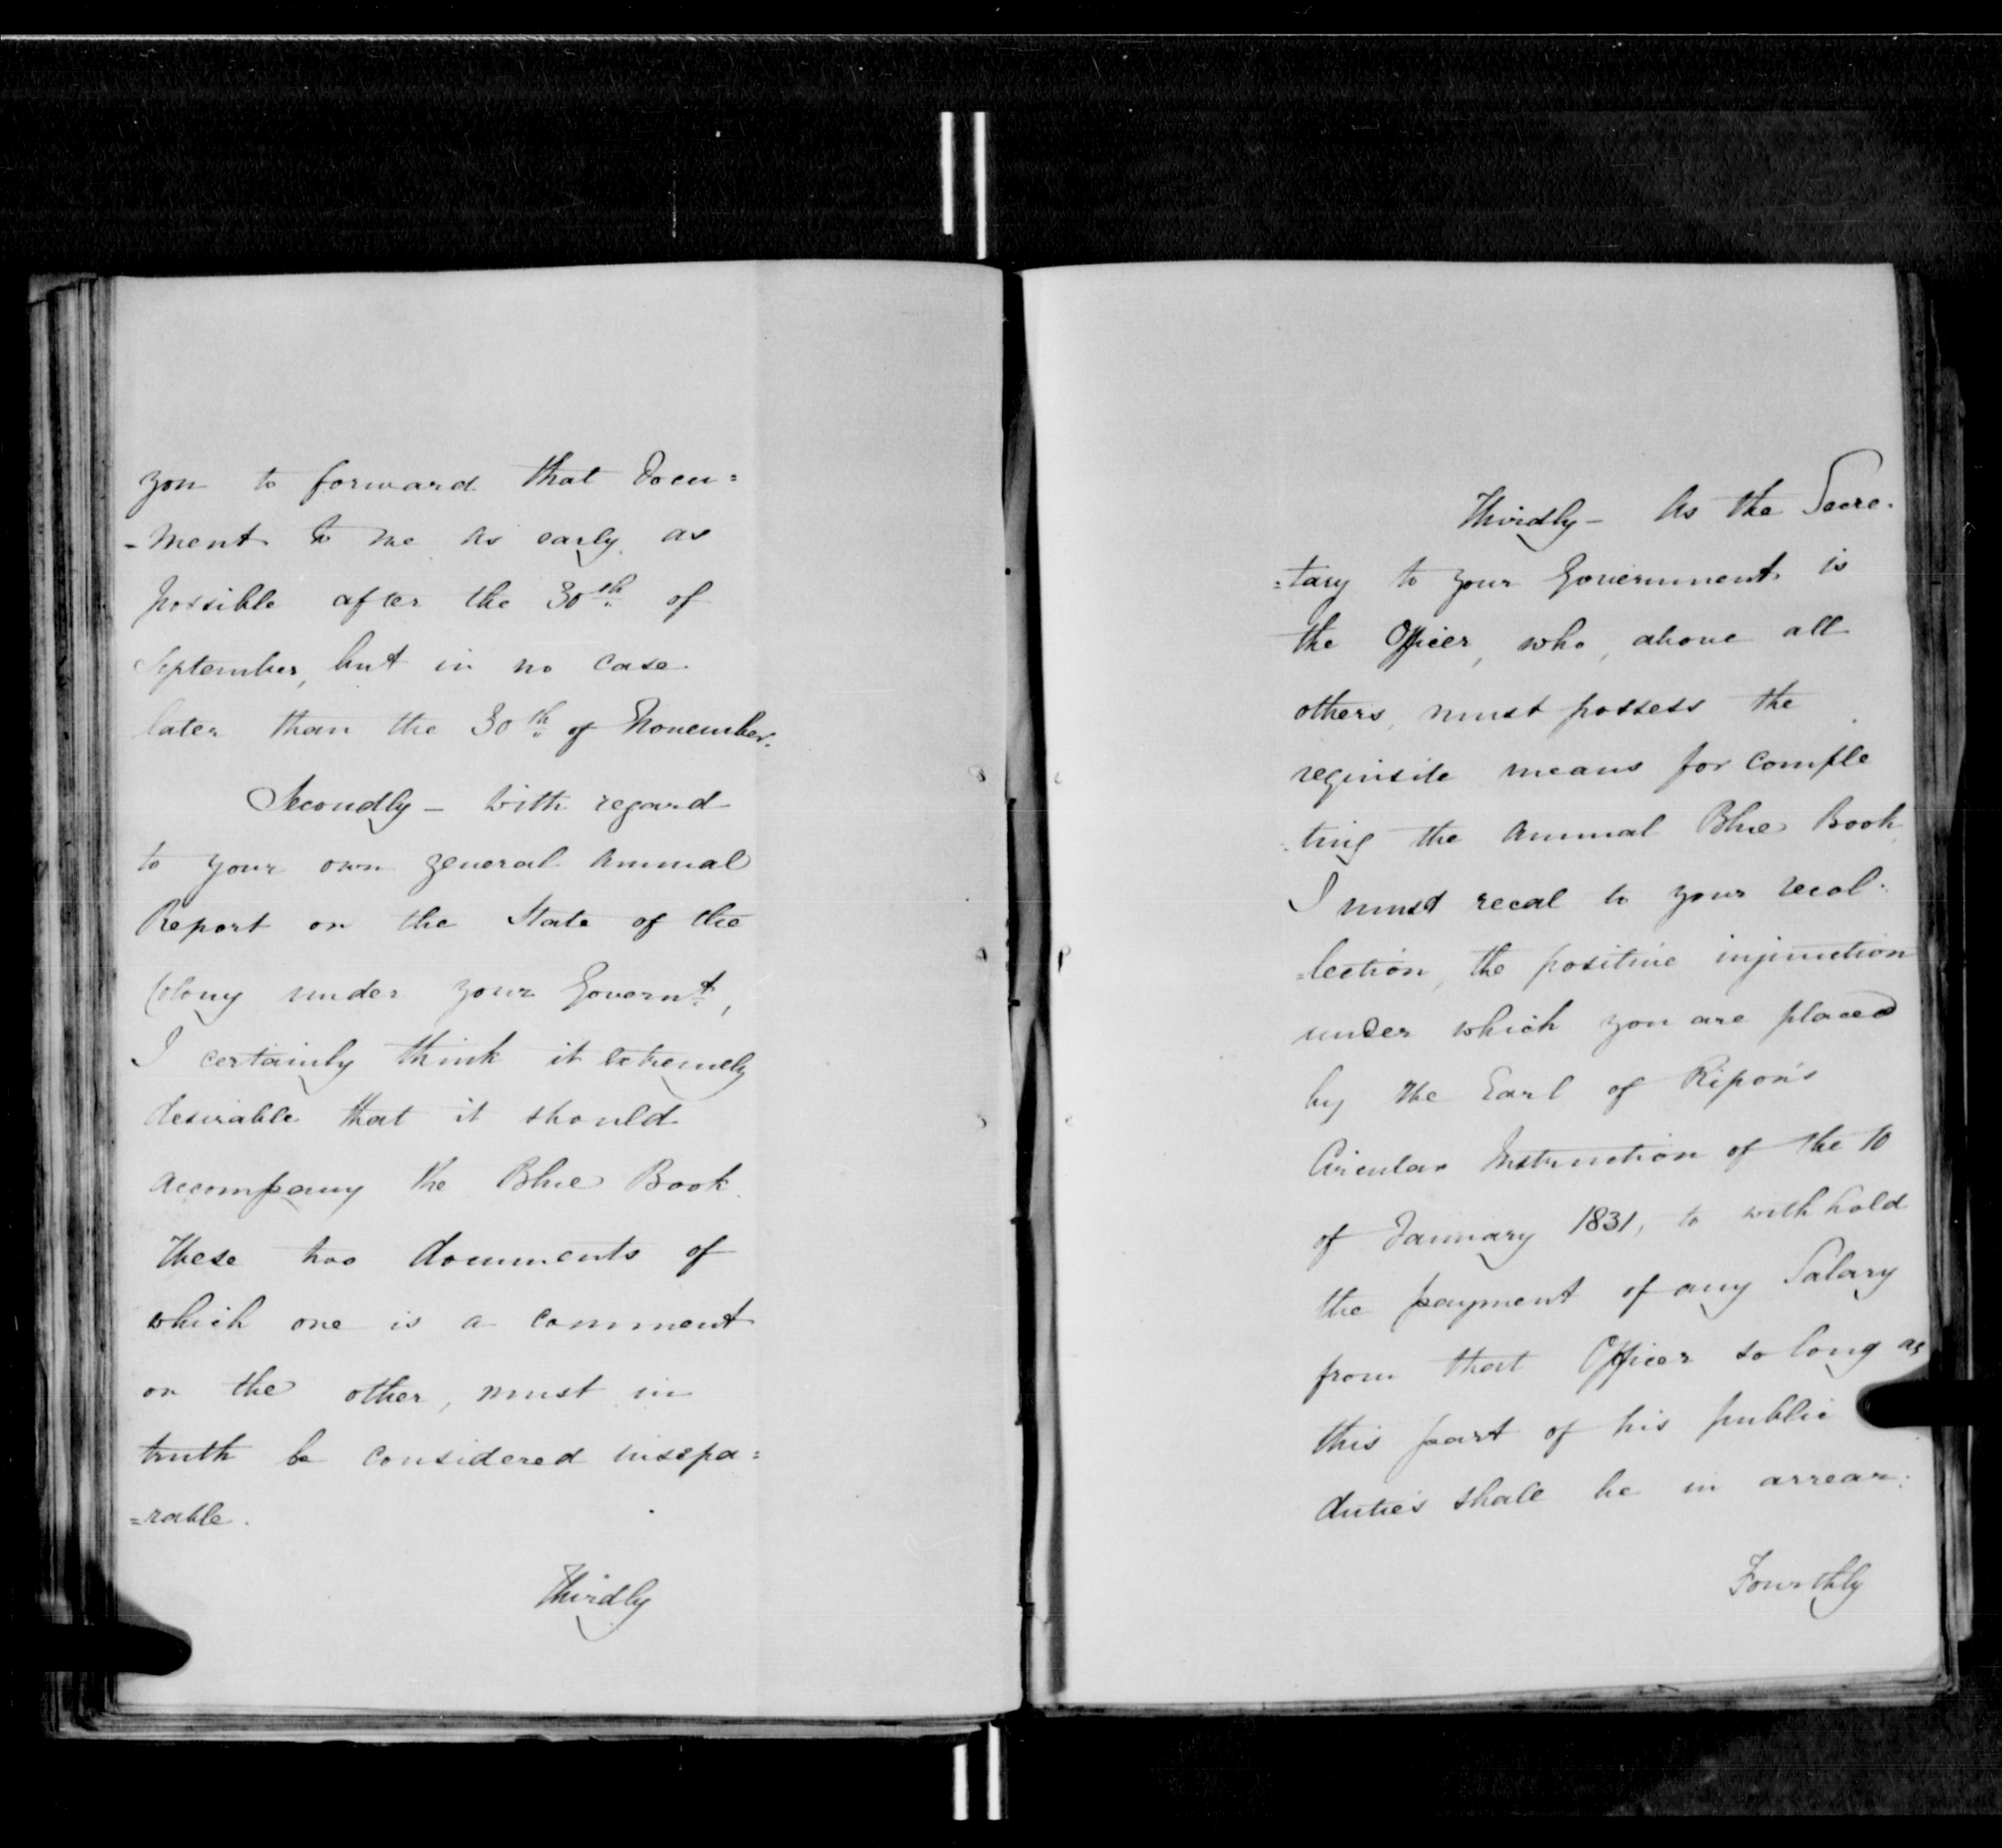 you to forward that Docu=
-ment to me as early as
possible after the 30th of
September, but in no case
later than the 30th of November.
Secondly - With regard
to your own general Annual
Report on the State of the
Colony under your Governt,
I certainly think it extremely
desirable that it should
accompany the Blue Book.
These two documents of
which one is a comment
on the other, must in
truth be considered insepa=
=rable.
Thirdly
Thirdly - As the Secre-
=tary to your Government is
the Officer, who, above all
others, must possess the
requisite means for comple
-ting the Annual Blue Book
I must recal to your recol-
=lection, the positive injunction
under which you are placed
by the Earl of Ripon's
Circular Instruction of the 10
of January 1831, to withhold
the payment of any Salary
from that Officer so long as
this part of his public
duties shall be in arrear.
Fourthly